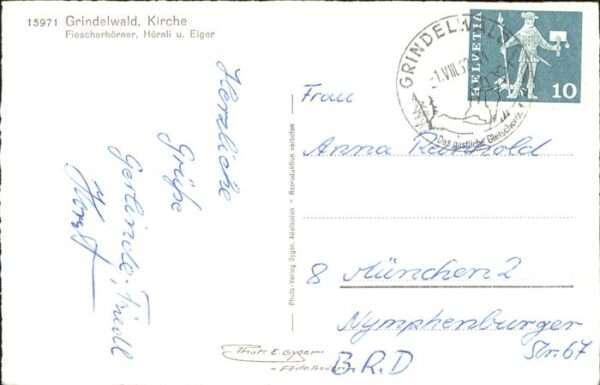 15971 Grindelwald, Kirche
Fiescherhörner, Hörnli u. Eiger
Herzliche
Grüße
Gerlinde, Friedl
Horst
Photo-Verlag Gyger, Adelboden • Reproduktion verboten
GRINDELWALD
-1.VIII.
Das gastliche Gletscherdorf
HELVETIA
10
Frau
Anna Reinhold
8 München 2
Nymphenburger
Str. 67
B.R.D
Phot. E. Gyger
- Adelboden